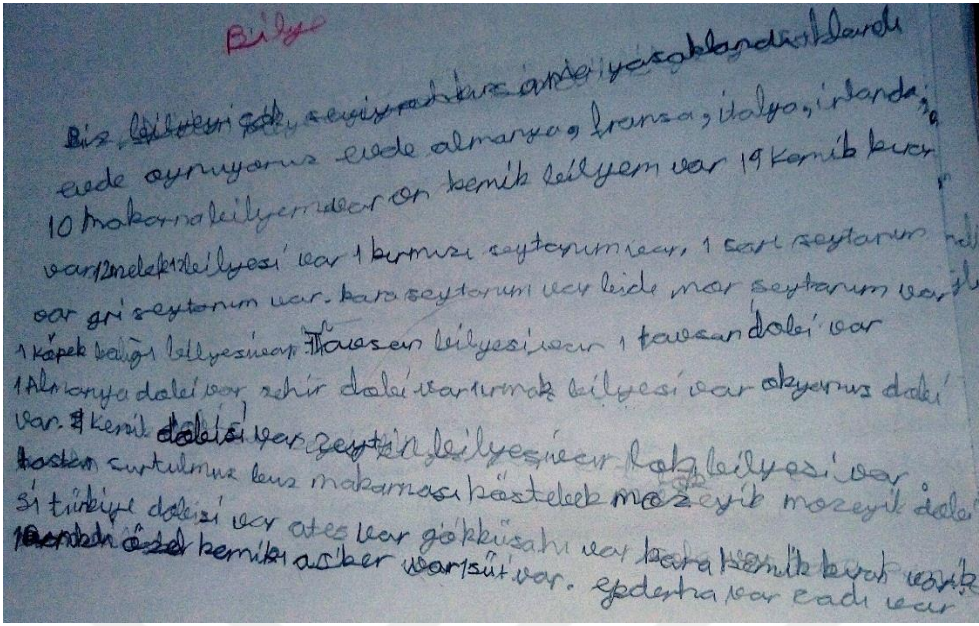 Bilye
Biz bilyeri çok seviyoruz ama yasaklandı
evde oynuyoruz evde almanya, fransa, italya, irlanda,
10 makarna bilyem var on kemik bilyem var 19 kemik kıvır
var 12 melek bilyesi var 1 kırmızı seytanım var, 1 sarı seytanım
var gri seytanım var. kara seytanım var bide mor seytanım var
1 köpek balığı billyesi var Tavsan bilyesi var 1 tavsan dobi var
1 Almanya dobi var sehir dobi var ırmak bilyesi var okyanus dobi
var. kemik dobisi var zeytin bilyesi var bilyesi var
buz makarnası köstebek mozeyik mozeyik dobi
si türkiye dobisi var ates var gökküsahı var kara kemik
kemik asker var süt var. ejderha var cadı var